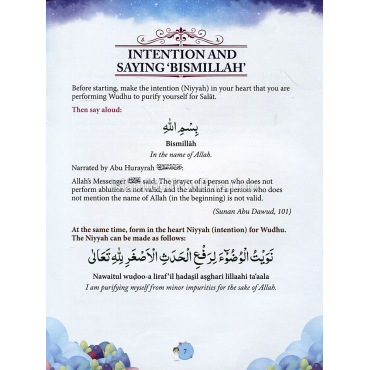 INTENTION AND
SAYING 'BISMILLAH'
Before starting, make the intention (Niyyah) in your heart that you are
performing Wudhu to purify yourself for Salāt.
Then say aloud:
بِسْمِ اللّٰهِ
Bismillāh
In the name of Allah.
Narrated by Abu Hurayrah
Allah's Messenger ﷺ said: The prayer of a person who does not
perform ablution is not valid, and the ablution of a person who does
not mention the name of Allah (in the beginning) is not valid.
(Sunan Abu Dawud, 101)
At the same time, form in the heart Niyyah (intention) for Wudhu.
The Niyyah can be made as follows:
نَوَيْتُ الْوُضُوْءَ لِرَفْعِ الْحَدَثِ الْاَصْغَرِ لِلّٰهِ تَعَالٰى
Nawaitul wuḍoo-a liraf'il ḥadaṣil aṣghari lillaahi ta'aala
I am purifying myself from minor impurities for the sake of Allah.
7